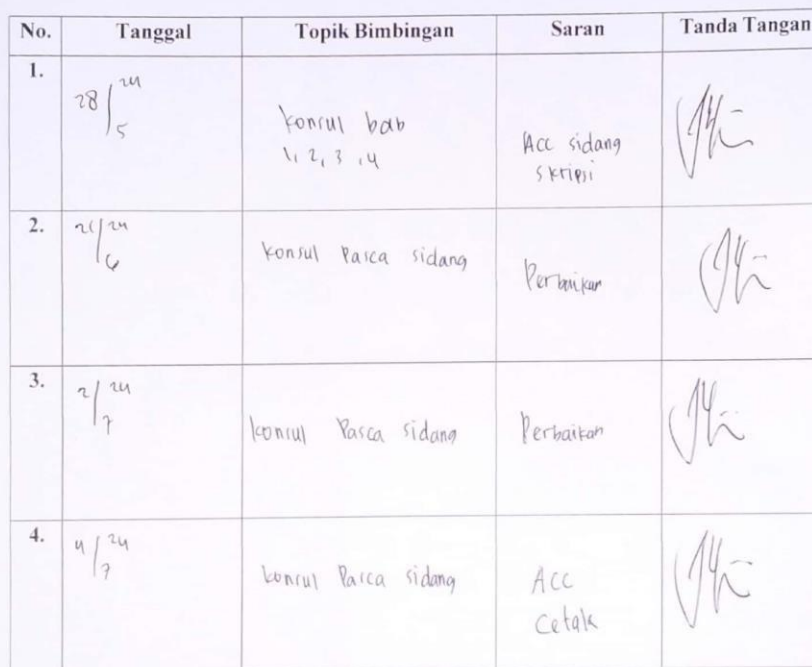 No. Tanggal Topik Bimbingan Saran Tanda Tangan
1. 28/5 24 konsul bab 1, 2, 3, 4 Acc sidang skripsi
2. /6 24 konsul Pasca sidang Perbaikan
3. 2/7 24 konsul Pasca sidang Perbaikan
4. 4/7 24 konsul Pasca sidang Acc Cetak